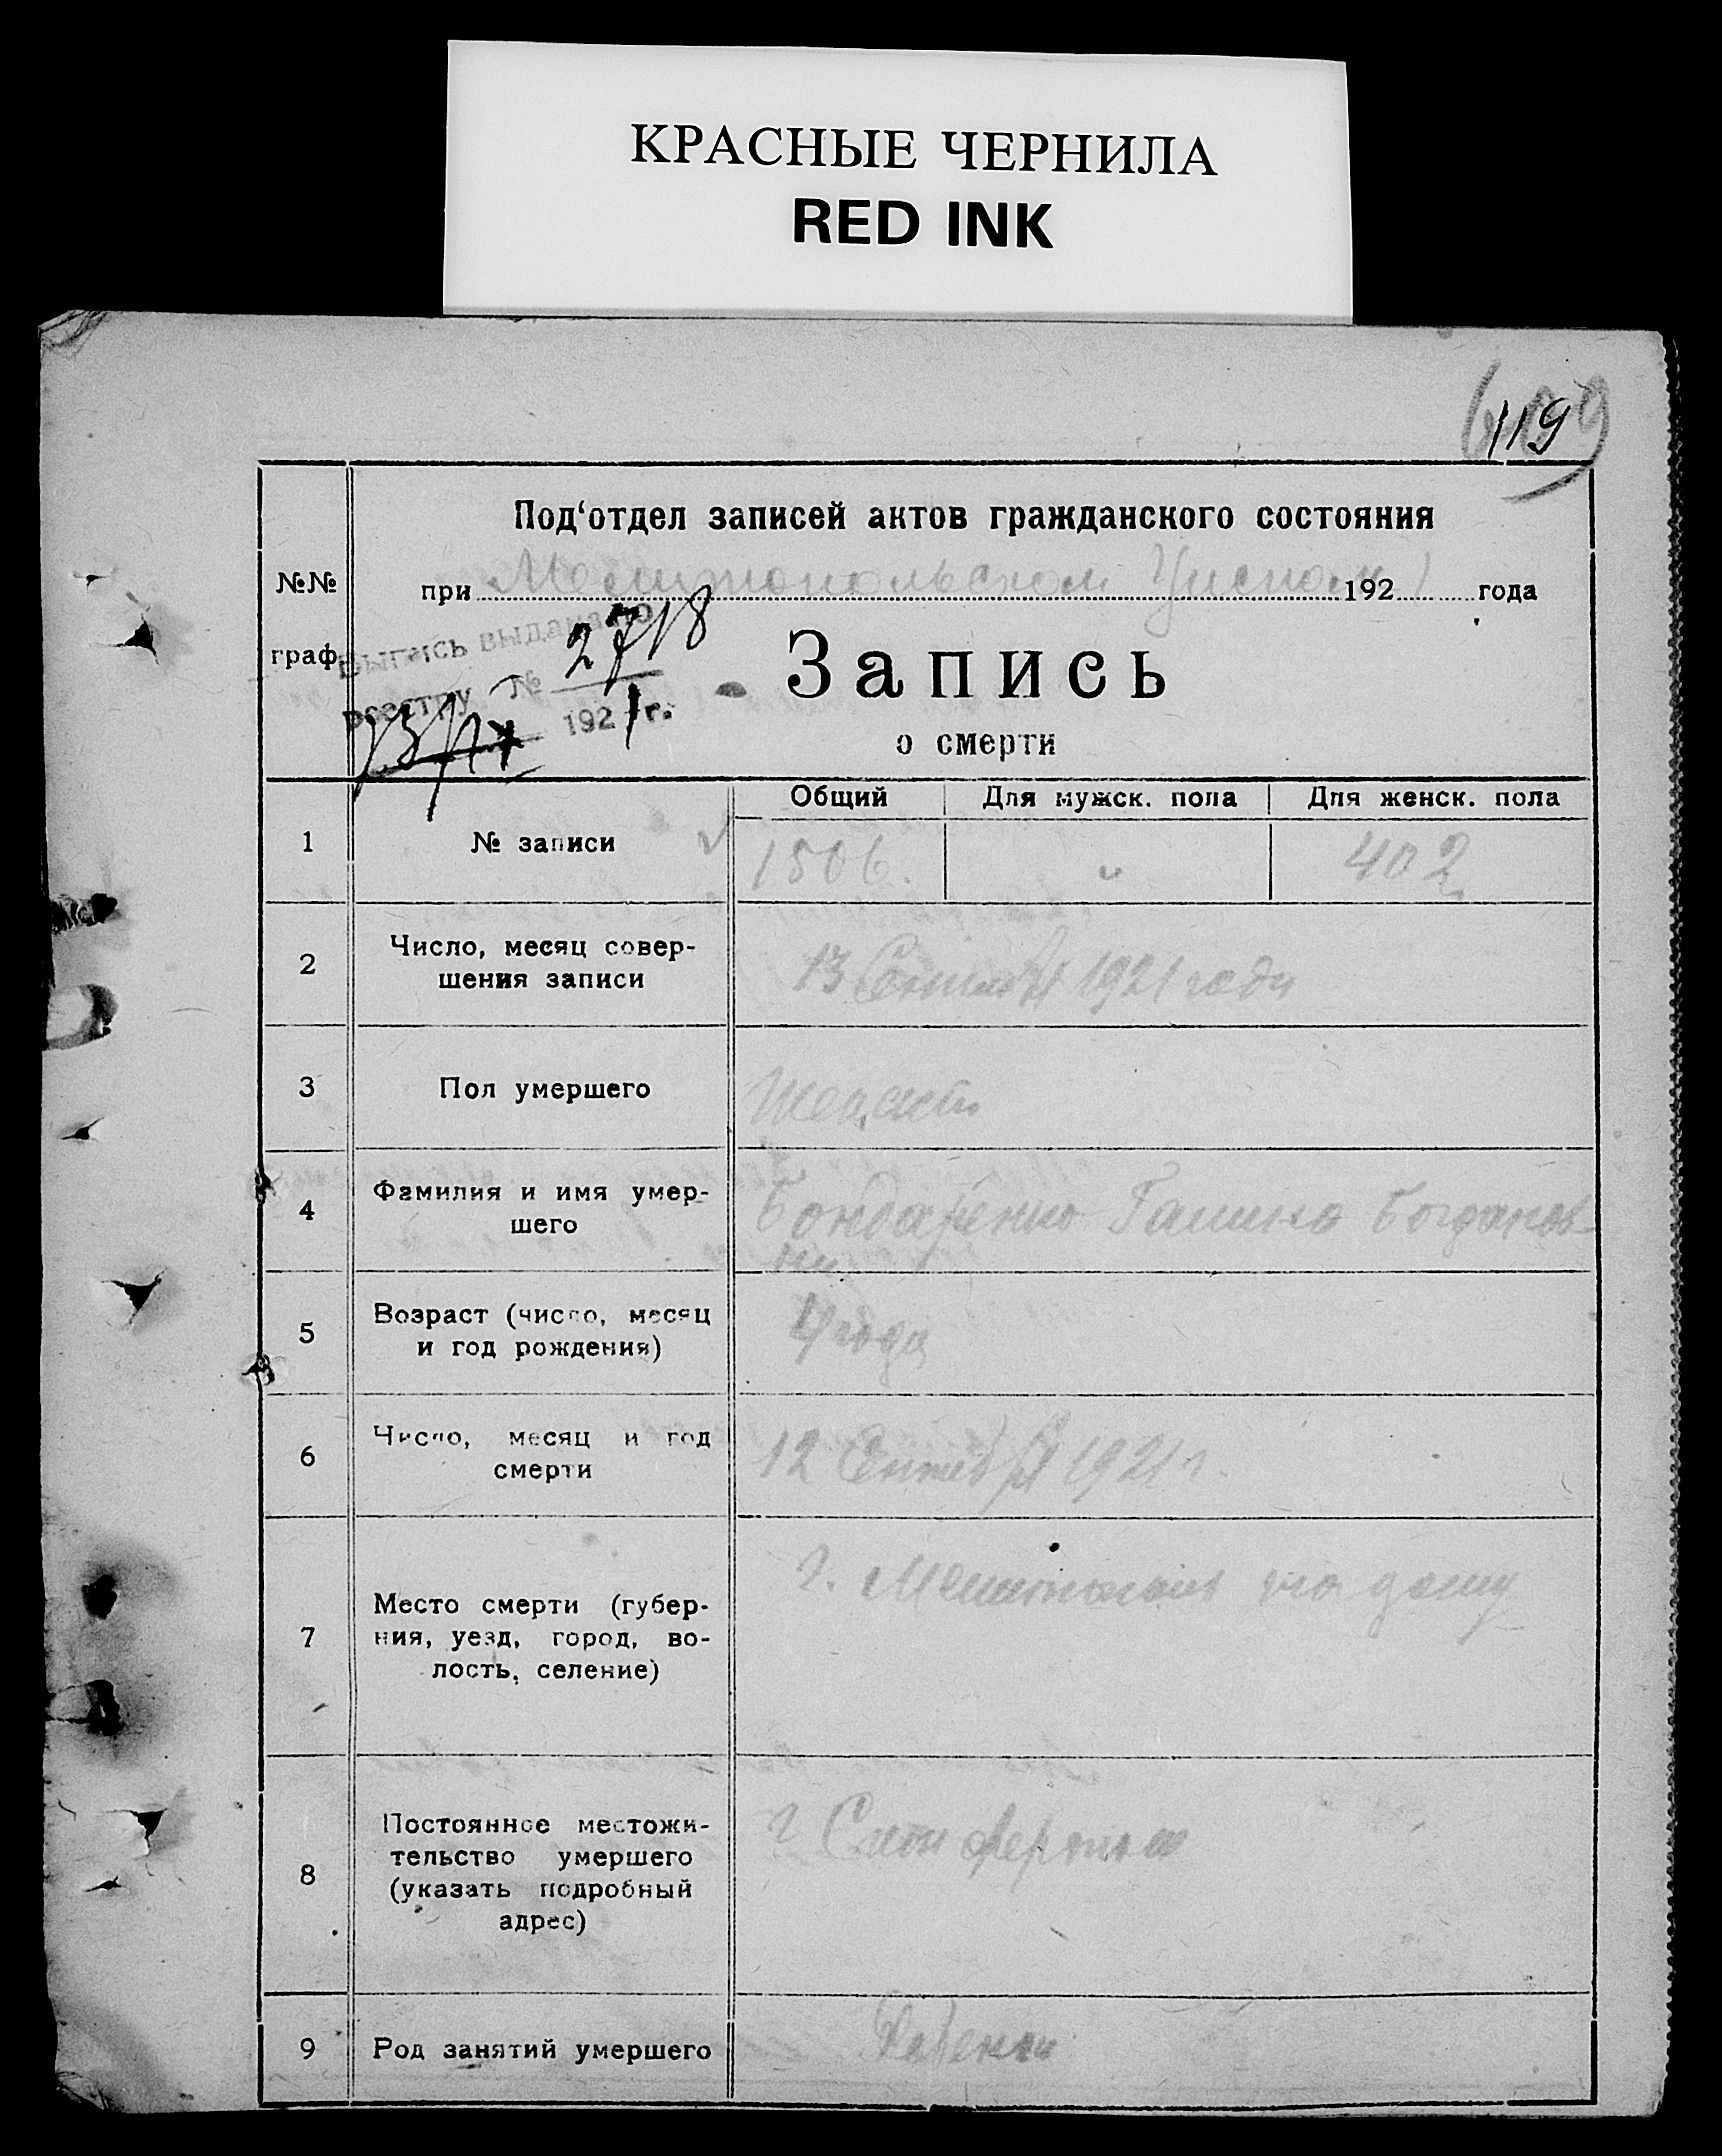 КРАСНЫЕ ЧЕРНИЛА
RED INK
119
Под‘отдел записей актов гражданского состояния
№№
граф
при Мелитопольском Уиспол 192 1 года
Выпись выдана по
реестру № 2718
192 1 г.
Запись
о смерти
Общий Для мужск. пола Для женск. пола
1 № записи 1506. " 402
2 Число, месяц совер-
шения записи
13 Сентября 1921 года
3 Пол умершего
4 Фамилия и имя умер-
шего
Бондаренко Галина Богданов-
на
5 Возраст (число, месяц
и год рождения)
4 года
6 Число, месяц и год
смерти
12 Сентября 1921 г.
7 Место смерти (губер-
ния, уезд, город, во-
лость, селение)
г. Мелитополь на дому
8 Постоянное местожи-
тельство умершего
(указать подробный
адрес)
г Симферополь
9 Род занятий умершего
Ребенок